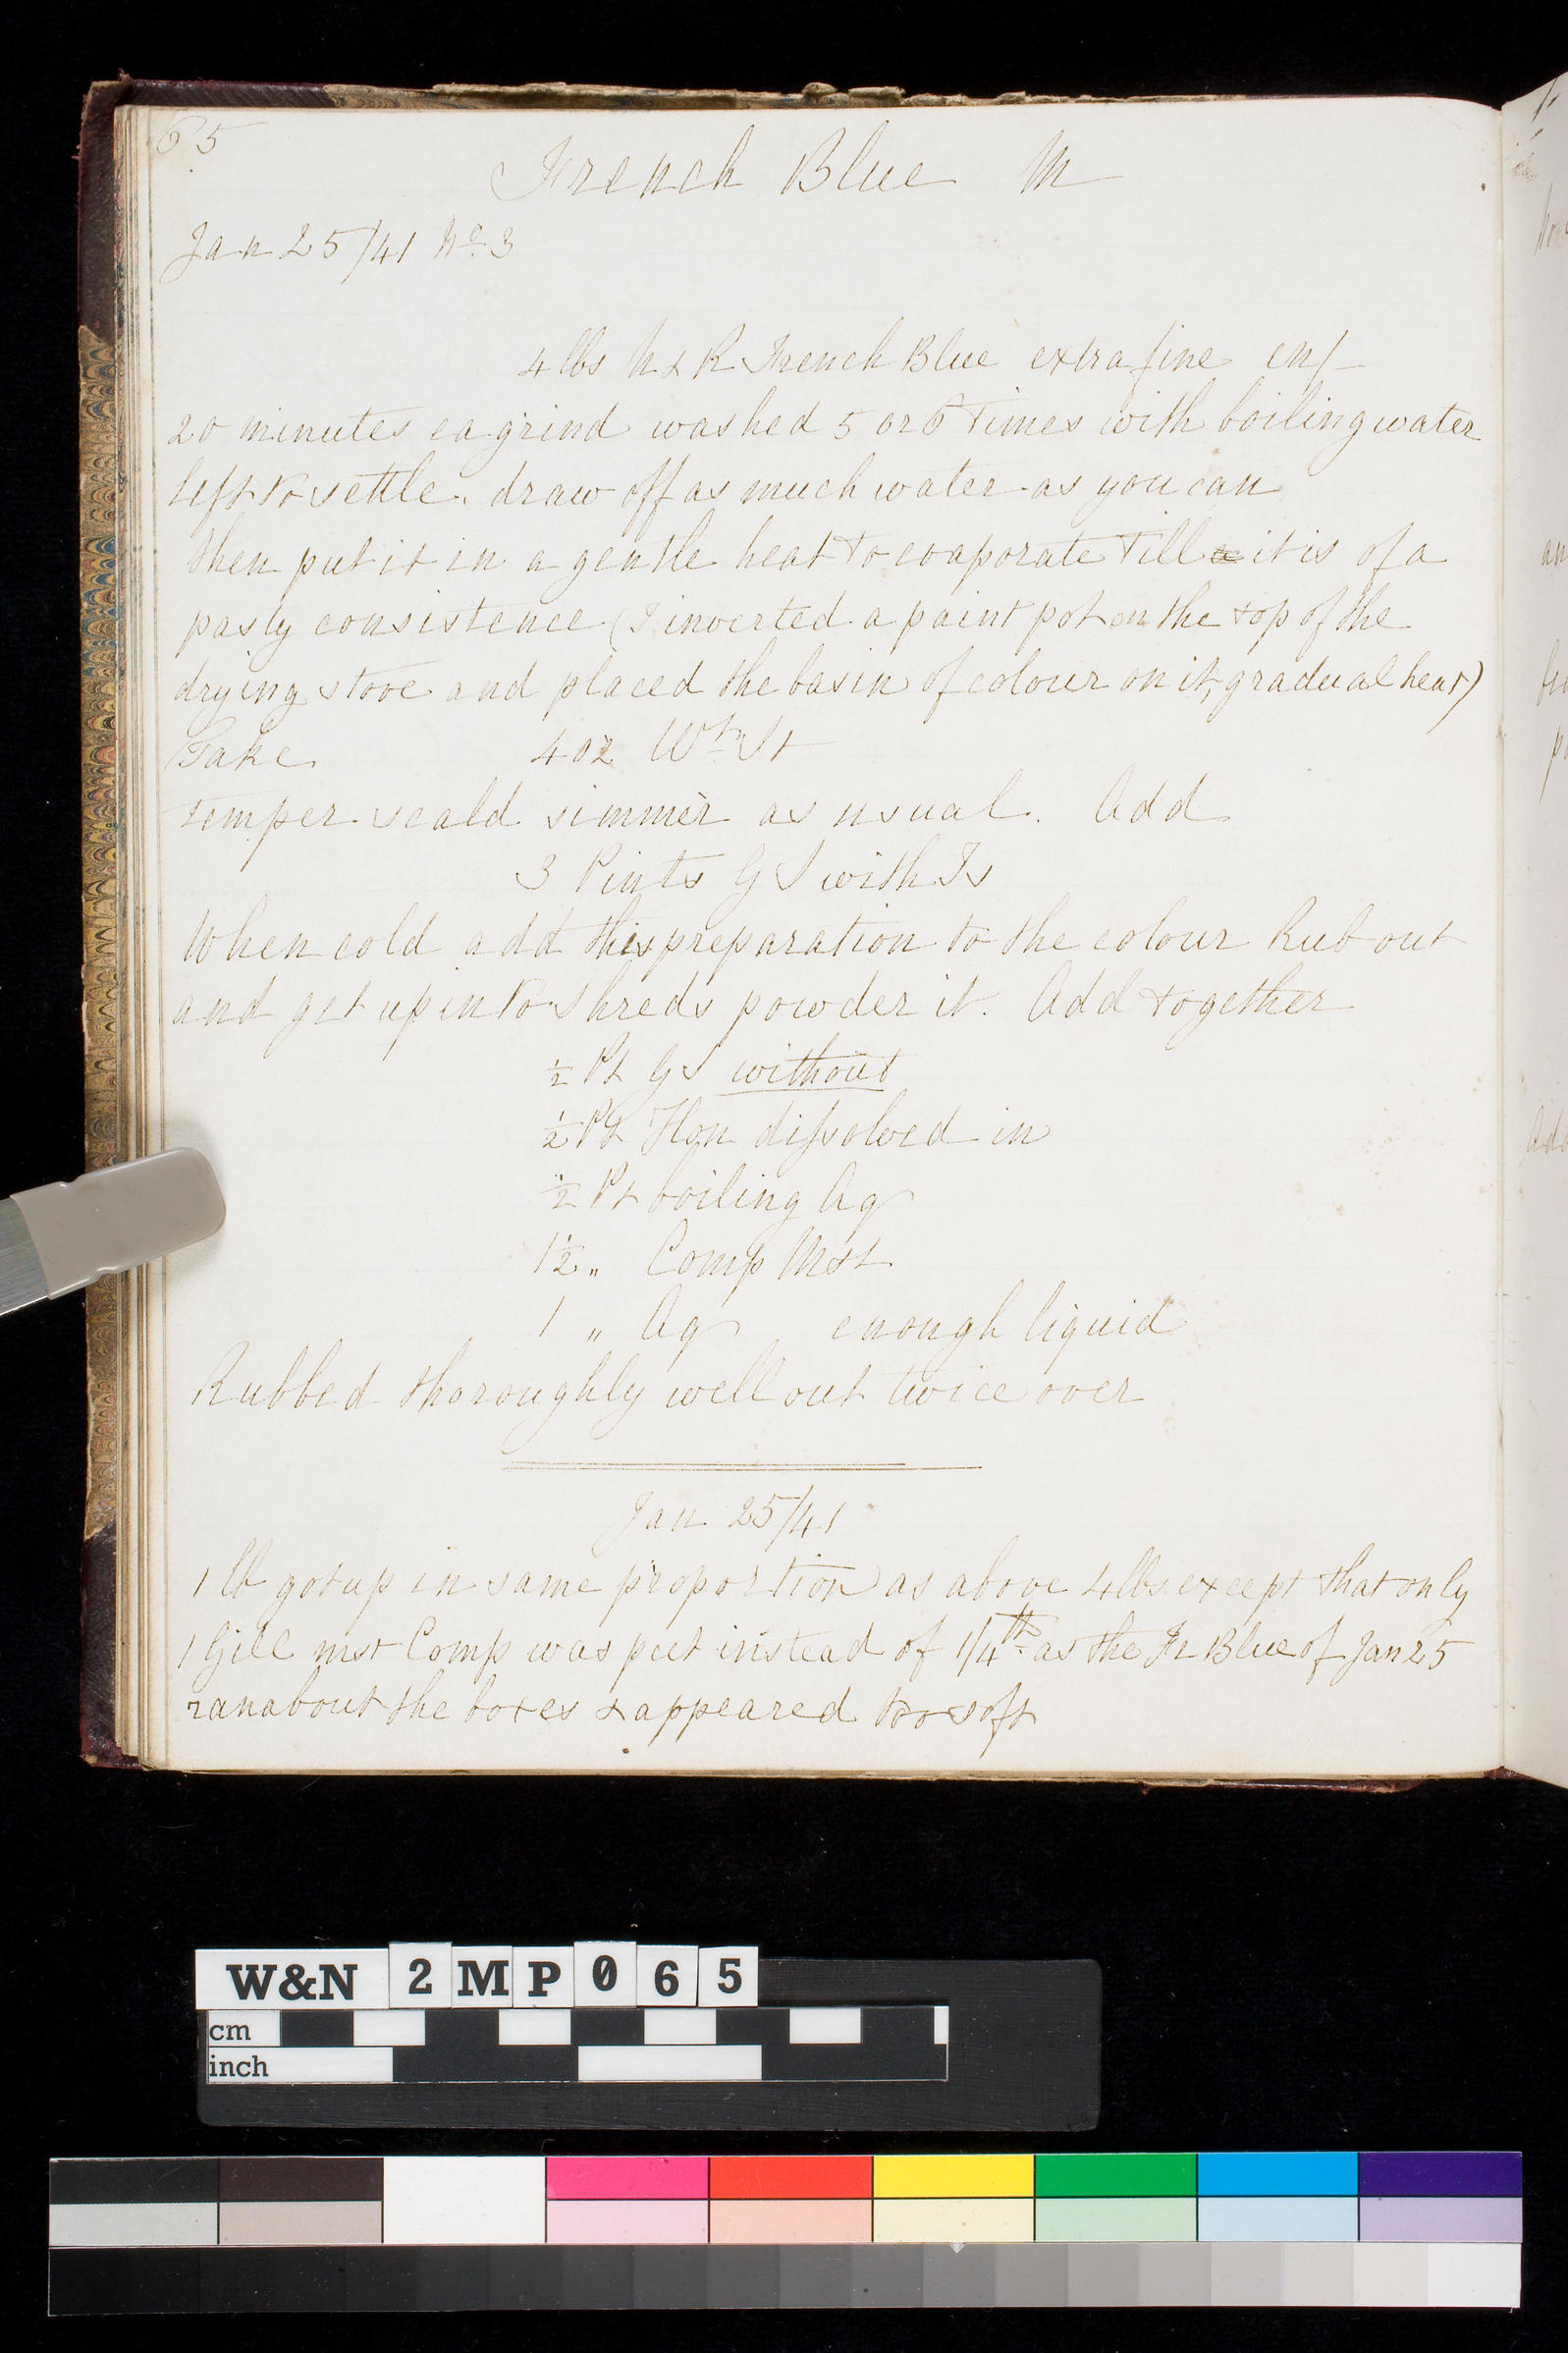 65
French Blue M
Jan 25/41 No. 3
4 lbs h & R French Blue extra fine en/-
20 minutes ea grind washed 5 or 6 times with boiling water
left to settle. draw off as much water as you can
then put it in a gentle heat to evaporate till it is of a
pasty consistence (I inverted a paint pot on the top of the
drying stove and placed the basin of colour on it, gradual heat)
Take 4 oz Wt St
temper scald simmer as usual. Add
3 Pints G S with Is
When cold add this preparation to the colour Rub out
and get up into shreds powder it. Add together
½ Pt G S without
½ Pt Hon dissolved in
½ Pt boiling Aq
1½ " Comp Mst
1 " Aq enough liquid
Rubbed thoroughly well out twice over
Jan 25/41
1 lb got up in same proportion as above 4 lbs except that only
1 Gill mst Comp was put instead of 1/4th as the Fr Blue of Jan 25
ran about the boxes & appeared too soft
W&N 2MP065
cm
inch